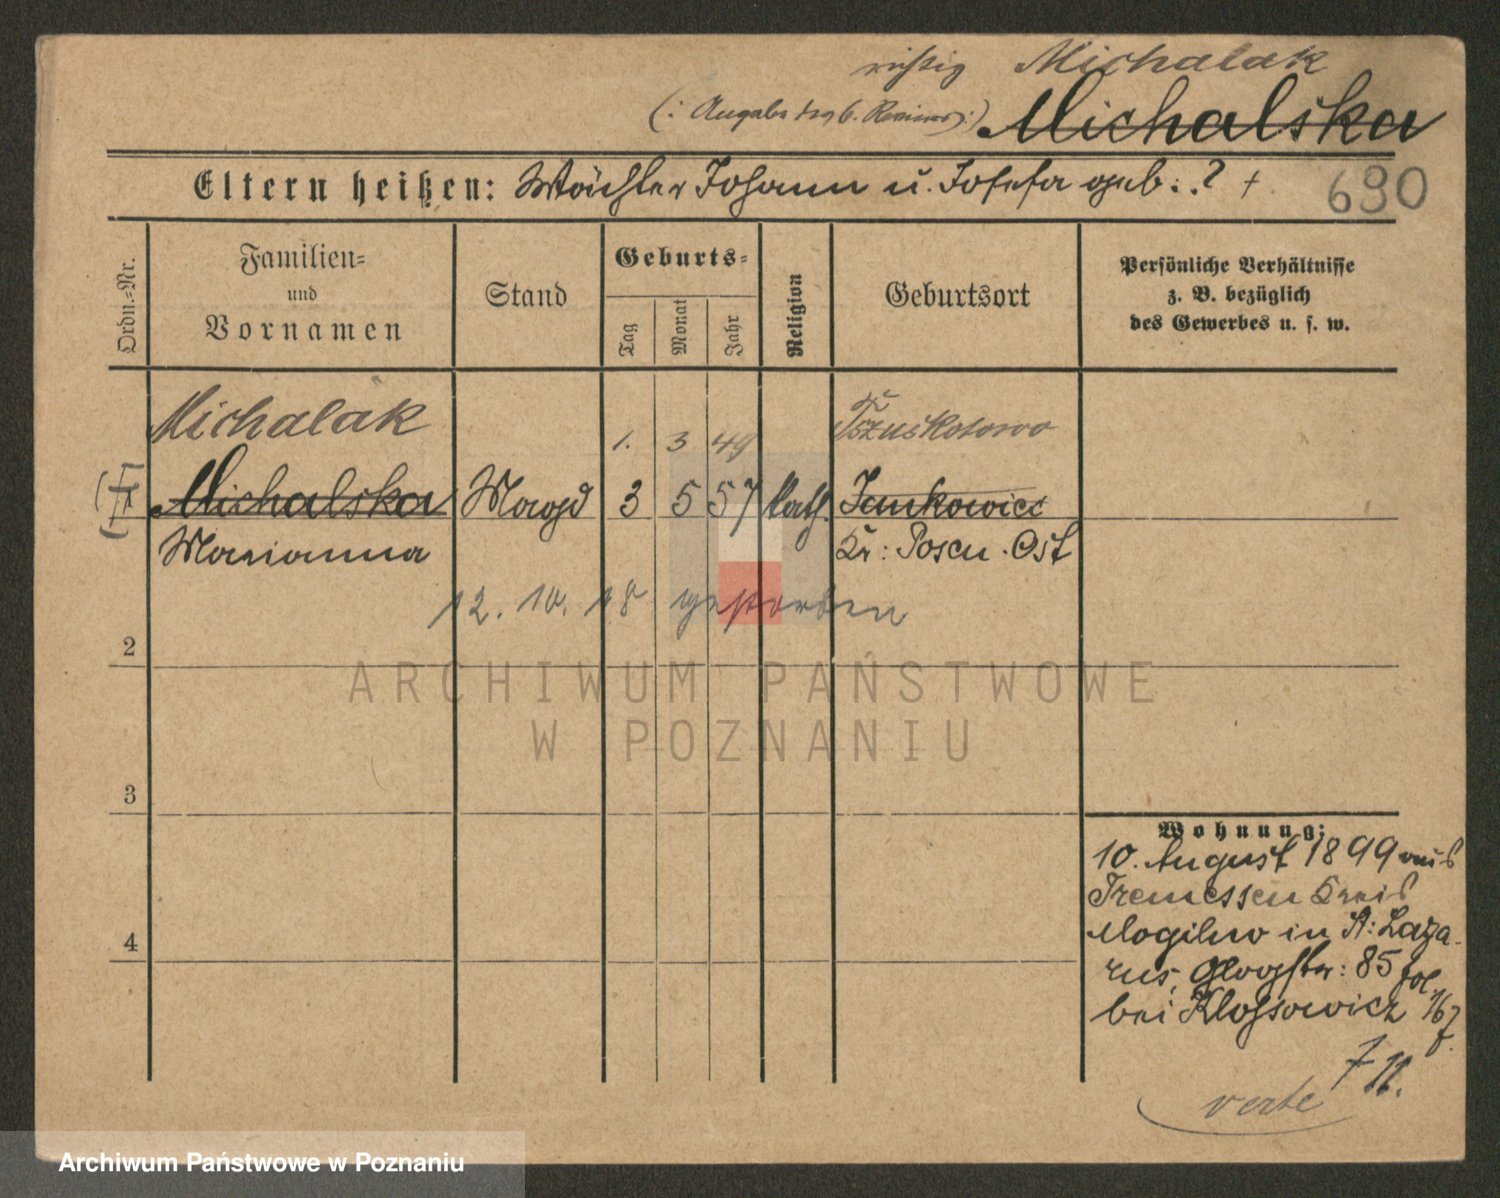 richtig Michalak
(: Angabe des b. Reviers :) Michalska
Eltern heißen: Wächter Johann u. Josefa geb: ? +
690
Ordn.=Nr.
Familien=
und
Vornamen
Stand
Geburts=
Tag
Monat
Jahr
Religion
Geburtsort
Persönliche Verhältnisse
z. B. bezüglich
des Gewerbes u. s. w.
Michalak
1. 3 49
Michalska Magd 3 5 57 kath. Jankowicc
Marianna Kr: Posen. Ost
12. 10. 18 gestorben
2
3
4
Wohnung:
10. August 1899 aus
Tremessen Kreis
Mogilno in St: Laza-
rus, Glogstr: 85
bei Klossowicz 167
verte
ARCHIWUM PAŃSTWOWE
W POZNANIU
Archiwum Państwowe w Poznaniu